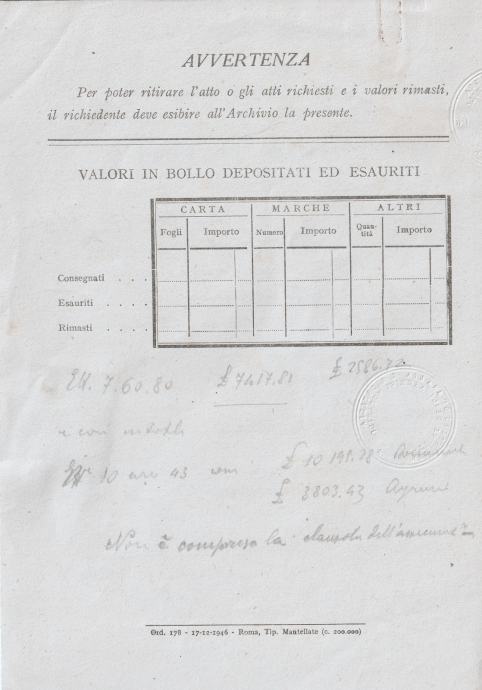 AVVERTENZA
Per poter ritirare l'atto o gli atti richiesti e i valori rimasti,
il richiedente deve esibire all'Archivio la presente.
VALORI IN BOLLO DEPOSITATI ED ESAURITI
CARTA MARCHE ALTRI
Fogli Importo Numero Importo Quan-
tità Importo
Consegnati . . . .
Esauriti . . . .
Rimasti . . . .
7.60.80 £ 7417.81 £
e così
10 are 43 £
£ 3803.43
Non è compresa la clausola
Ord. 178 - 17-12-1946 - Roma, Tip. Mantellate (c. 200.000)